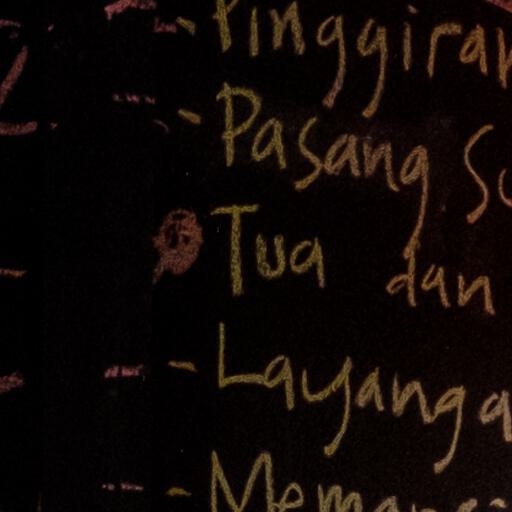 - Pinggiran
- Pasang Su
Tua dan
- Layanga
- Memang